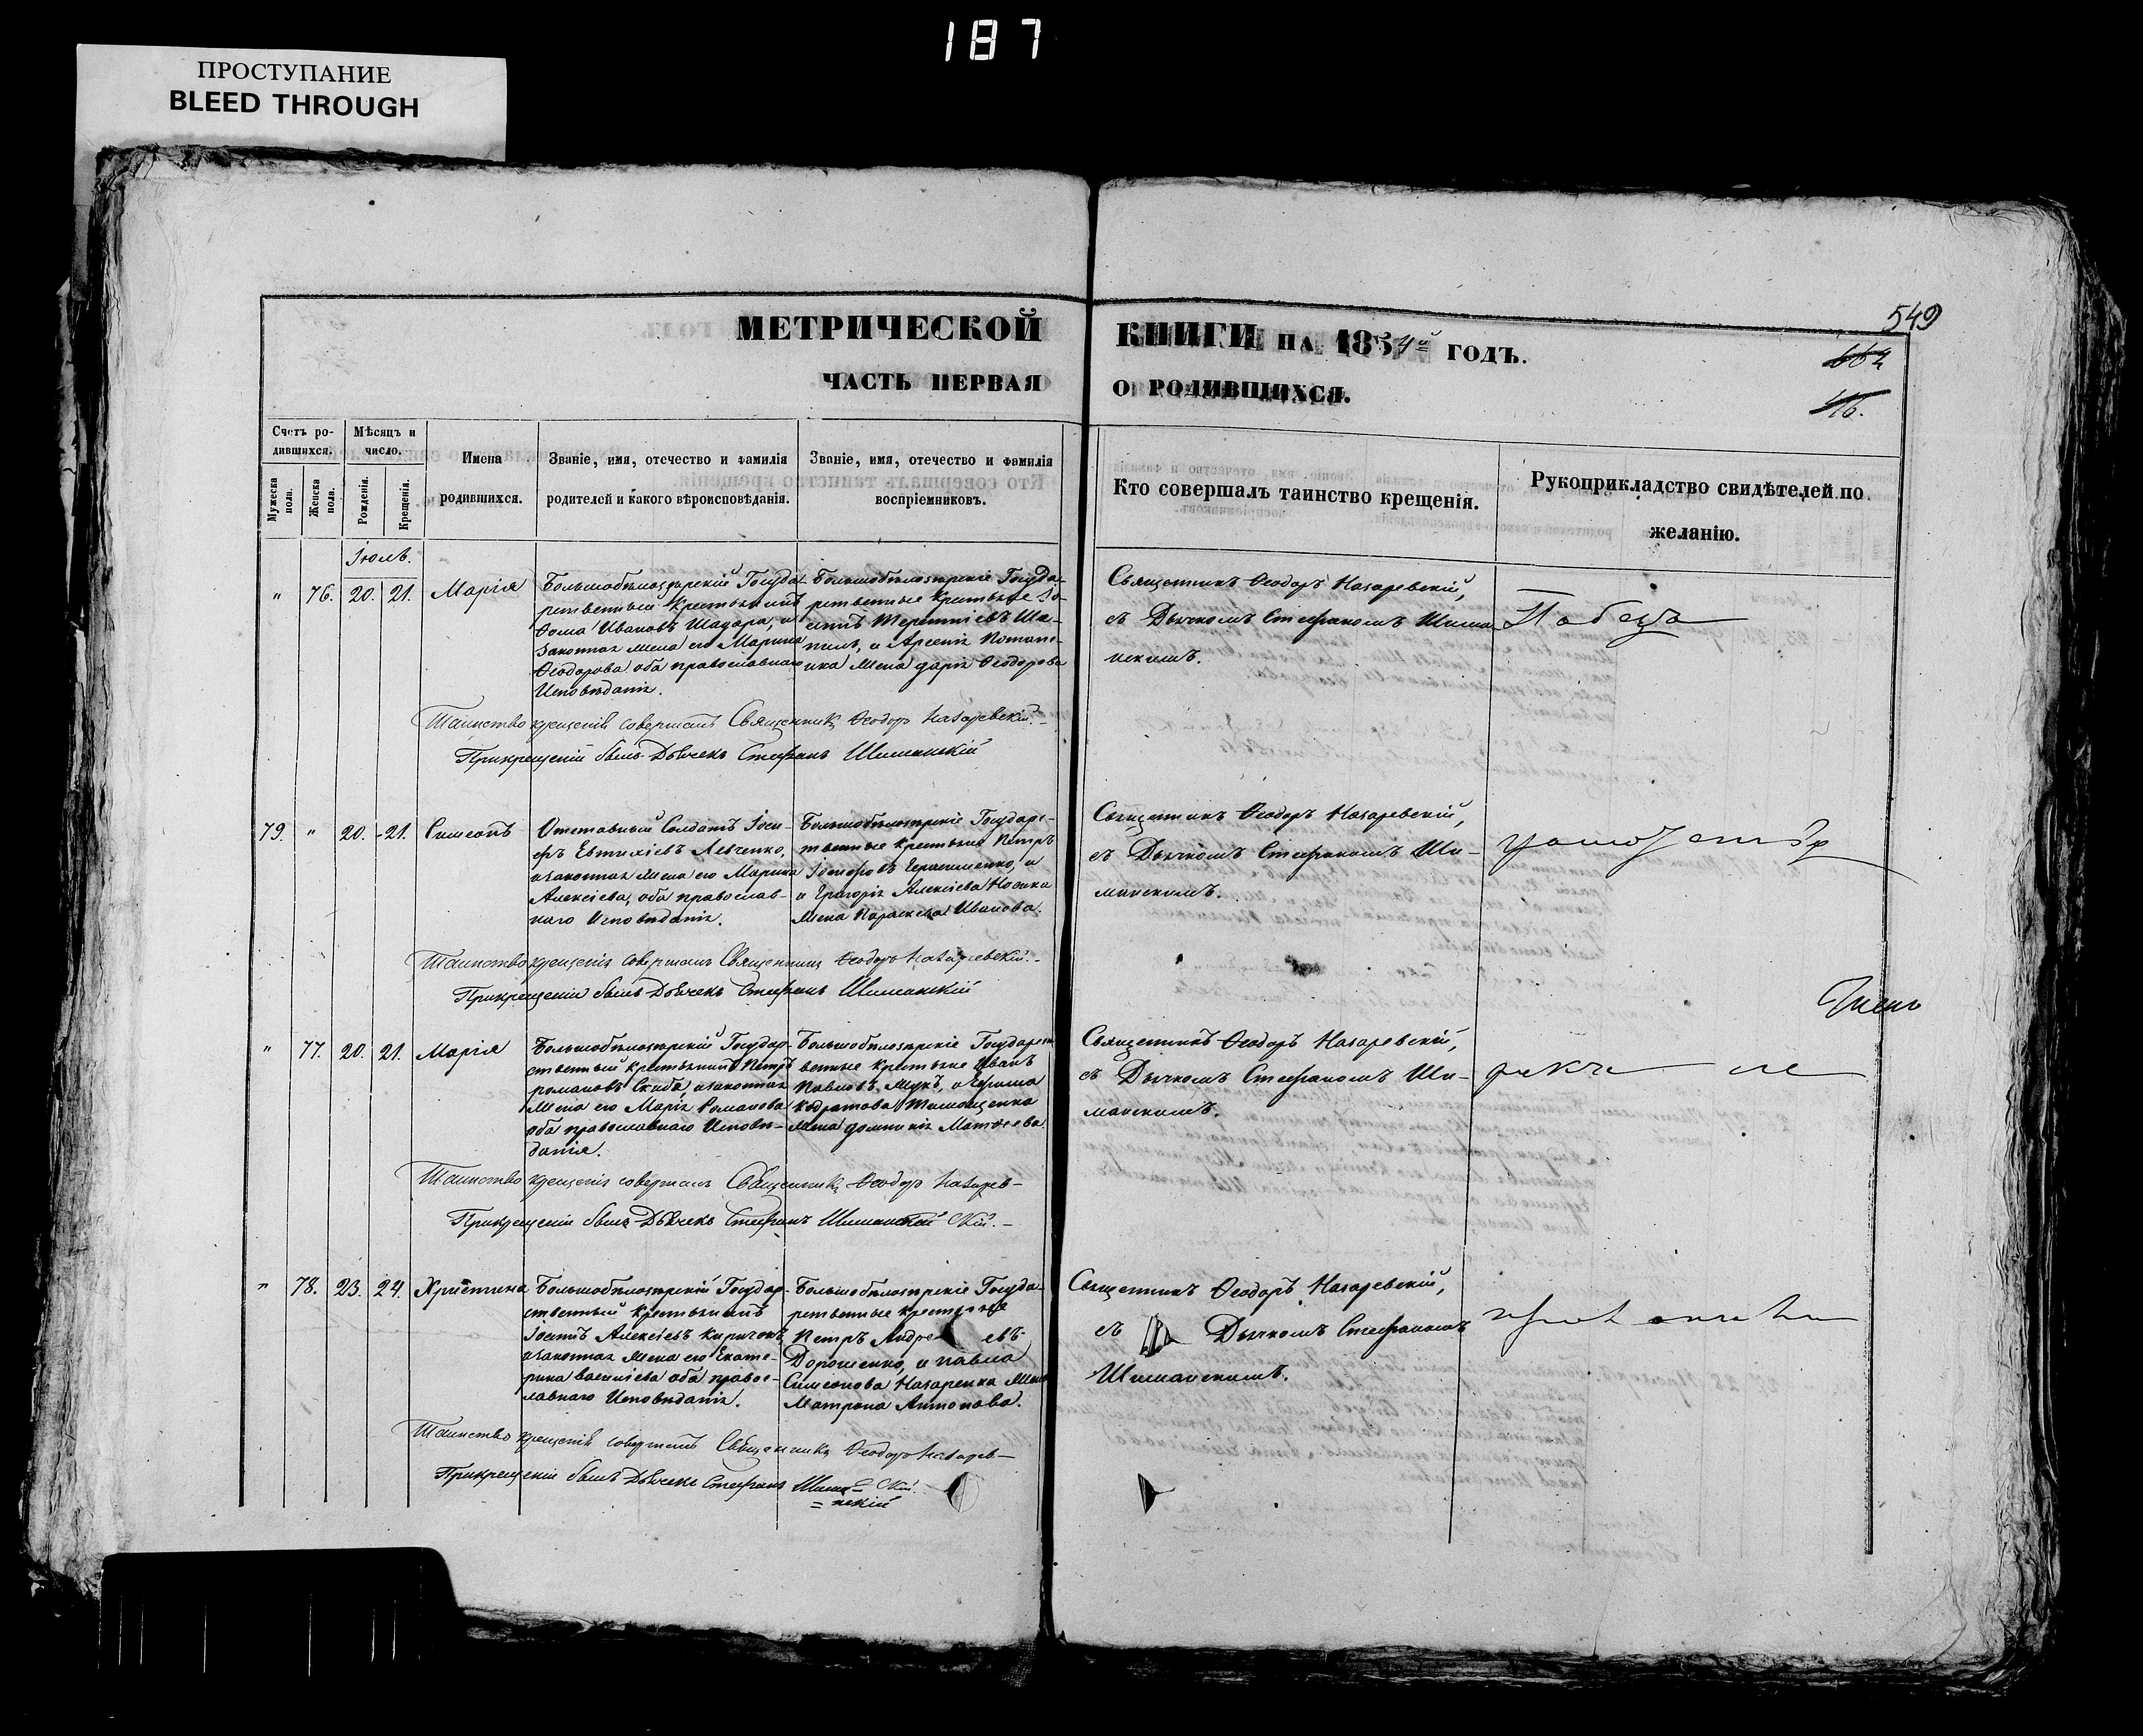 187
ПРОСТУПАНИЕ
BLEED THROUGH
МЕТРИЧЕСКОЙ
КНИГИ НА 1854й ГОДЪ.
549
ЧАСТЬ ПЕРВАЯ
О РОДИВШИХСЯ.
Счетъ ро-
дившихся.
Мѣсяцъ и
число.
Мужеска
пола.
Женска
пола.
Рожденія.
Крещенія.
Имена
родившихся.
Званіе, имя, отечество и фамилія
родителей и какого вѣроисповѣданія.
Званіе, имя, отечество и фамилія
воспріемниковъ.
Кто совершалъ таинство крещенія.
Рукоприкладство свидѣтелей по
желанію.
Іюль.
" 76. 20. 21. Марія
Большобѣлозѣрскій Госуда-
рственный Крестьянинъ
Ѳома Ивановъ Шадара, и
Законная Жена его Марина
Ѳеодорова оба православнаго
Исповѣданія.
Большобѣлозѣрскіе Госуда-
рственные Крестьяне
и Арсенія Романе-
нка Жена дарія Ѳеодорова
Священникъ Ѳеодоръ Назаревскій,
съ Дьячкомъ Стефаномъ Шима
нскимъ.
Таинство крещенія совершалъ Священникъ Ѳеодоръ Назаревскій.
При крещеніи былъ Дьячекъ Стефанъ Шиманскій
79. " 20. 21. Симеонъ
Отставный Солдатъ Іоси-
фъ Евтихіевъ Левченко,
и законная Жена его Марина
Алексіева, оба православ-
наго Исповѣданія.
Большобѣлозѣрскіе Государс-
твенные крестьяне Петръ
Іосифовъ Герасименко, и
и Григорія Алексіева Носика
Жена Параскева Иванова.
Священникъ Ѳеодоръ Назаревскій,
съ Дьячкомъ Стефаномъ Ши-
манскимъ.
Таинство крещенія совершалъ Священникъ Ѳеодоръ Назаревскій.
При крещеніи былъ Дьячекъ Стефанъ Шиманскій
" 77. 20. 21. Марія
Большобѣлозѣрскій Государ-
ственный Крестьянинъ Петръ
романовъ Скиба и законная
Жена его Марія Романова
оба православнаго Исповѣ-
данія.
Большобѣлозѣрскіе Государст-
венные крестьяне Иванъ
Павловъ Жукъ, и
Кодратова Тимощенка
Жена домникія Матѳеева.
Священникъ Ѳеодоръ Назаревскій,
съ Дьячкомъ Стефаномъ Ши-
манскимъ.
Таинство крещенія совершалъ Священникъ Ѳеодоръ Назарев-
При крещеніи былъ Дьячекъ Стефанъ Шиманскій скій.
" 78. 23. 24. Христина
Большобѣлозѣрскій Государ-
ственный крестьянинъ
Іоаннъ Алексіевъ Киричокъ,
и законная Жена его Екате-
рина васіліева оба правос-
лавнаго Исповѣданія.
Большобѣлозѣрскіе Госуда-
рственные крестьяне
Петръ Андре евъ
Дорошенко, и павла
Симеонова Назаренка Жена
Матрона Антонова.
Священникъ Ѳеодоръ Назаревскій,
съ Дьячкомъ Стефаномъ
Шиманскимъ.
Таинство крещенія совершалъ Священникъ Ѳеодоръ Назарев-
При крещеніи былъ Дьячекъ Стефанъ Шима= скій.
=нскій